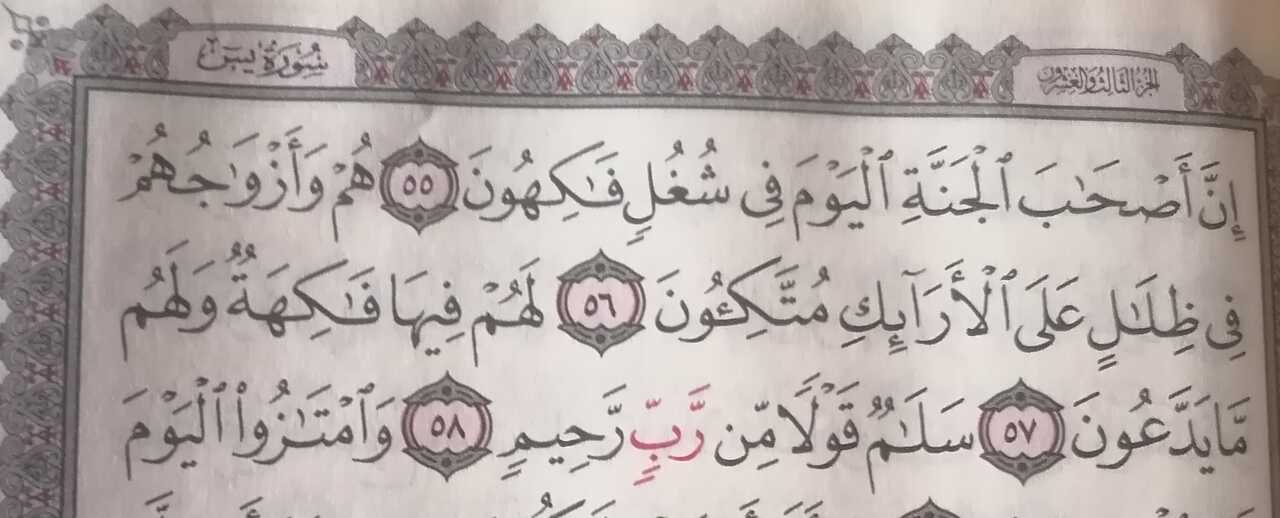 الجزء الثالث والعشرون
سورة يس
إِنَّ أَصْحَٰبَ ٱلْجَنَّةِ ٱلْيَوْمَ فِى شُغُلٍ فَٰكِهُونَ ٥٥ هُمْ وَأَزْوَٰجُهُمْ
فِى ظِلَٰلٍ عَلَى ٱلْأَرَآئِكِ مُتَّكِـُٔونَ ٥٦ لَهُمْ فِيهَا فَٰكِهَةٌ وَلَهُم
مَّا يَدَّعُونَ ٥٧ سَلَٰمٌ قَوْلًا مِّن رَّبٍّ رَّحِيمٍ ٥٨ وَٱمْتَٰزُوا۟ ٱلْيَوْمَ